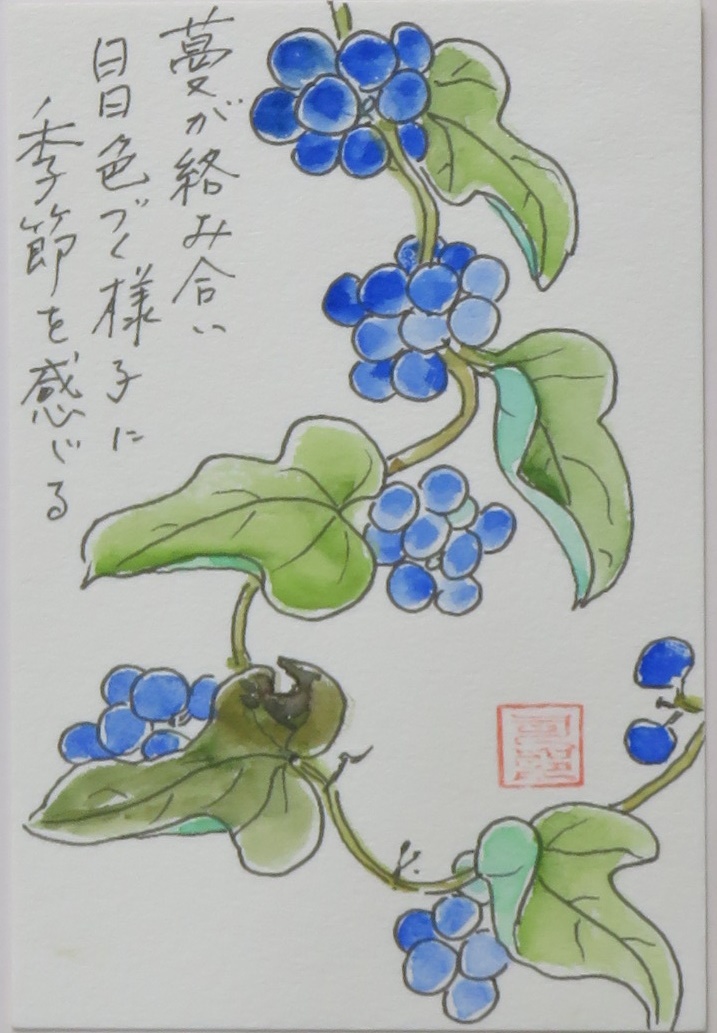 蔓が絡み合い
日日色づく様子に
季節を感じる